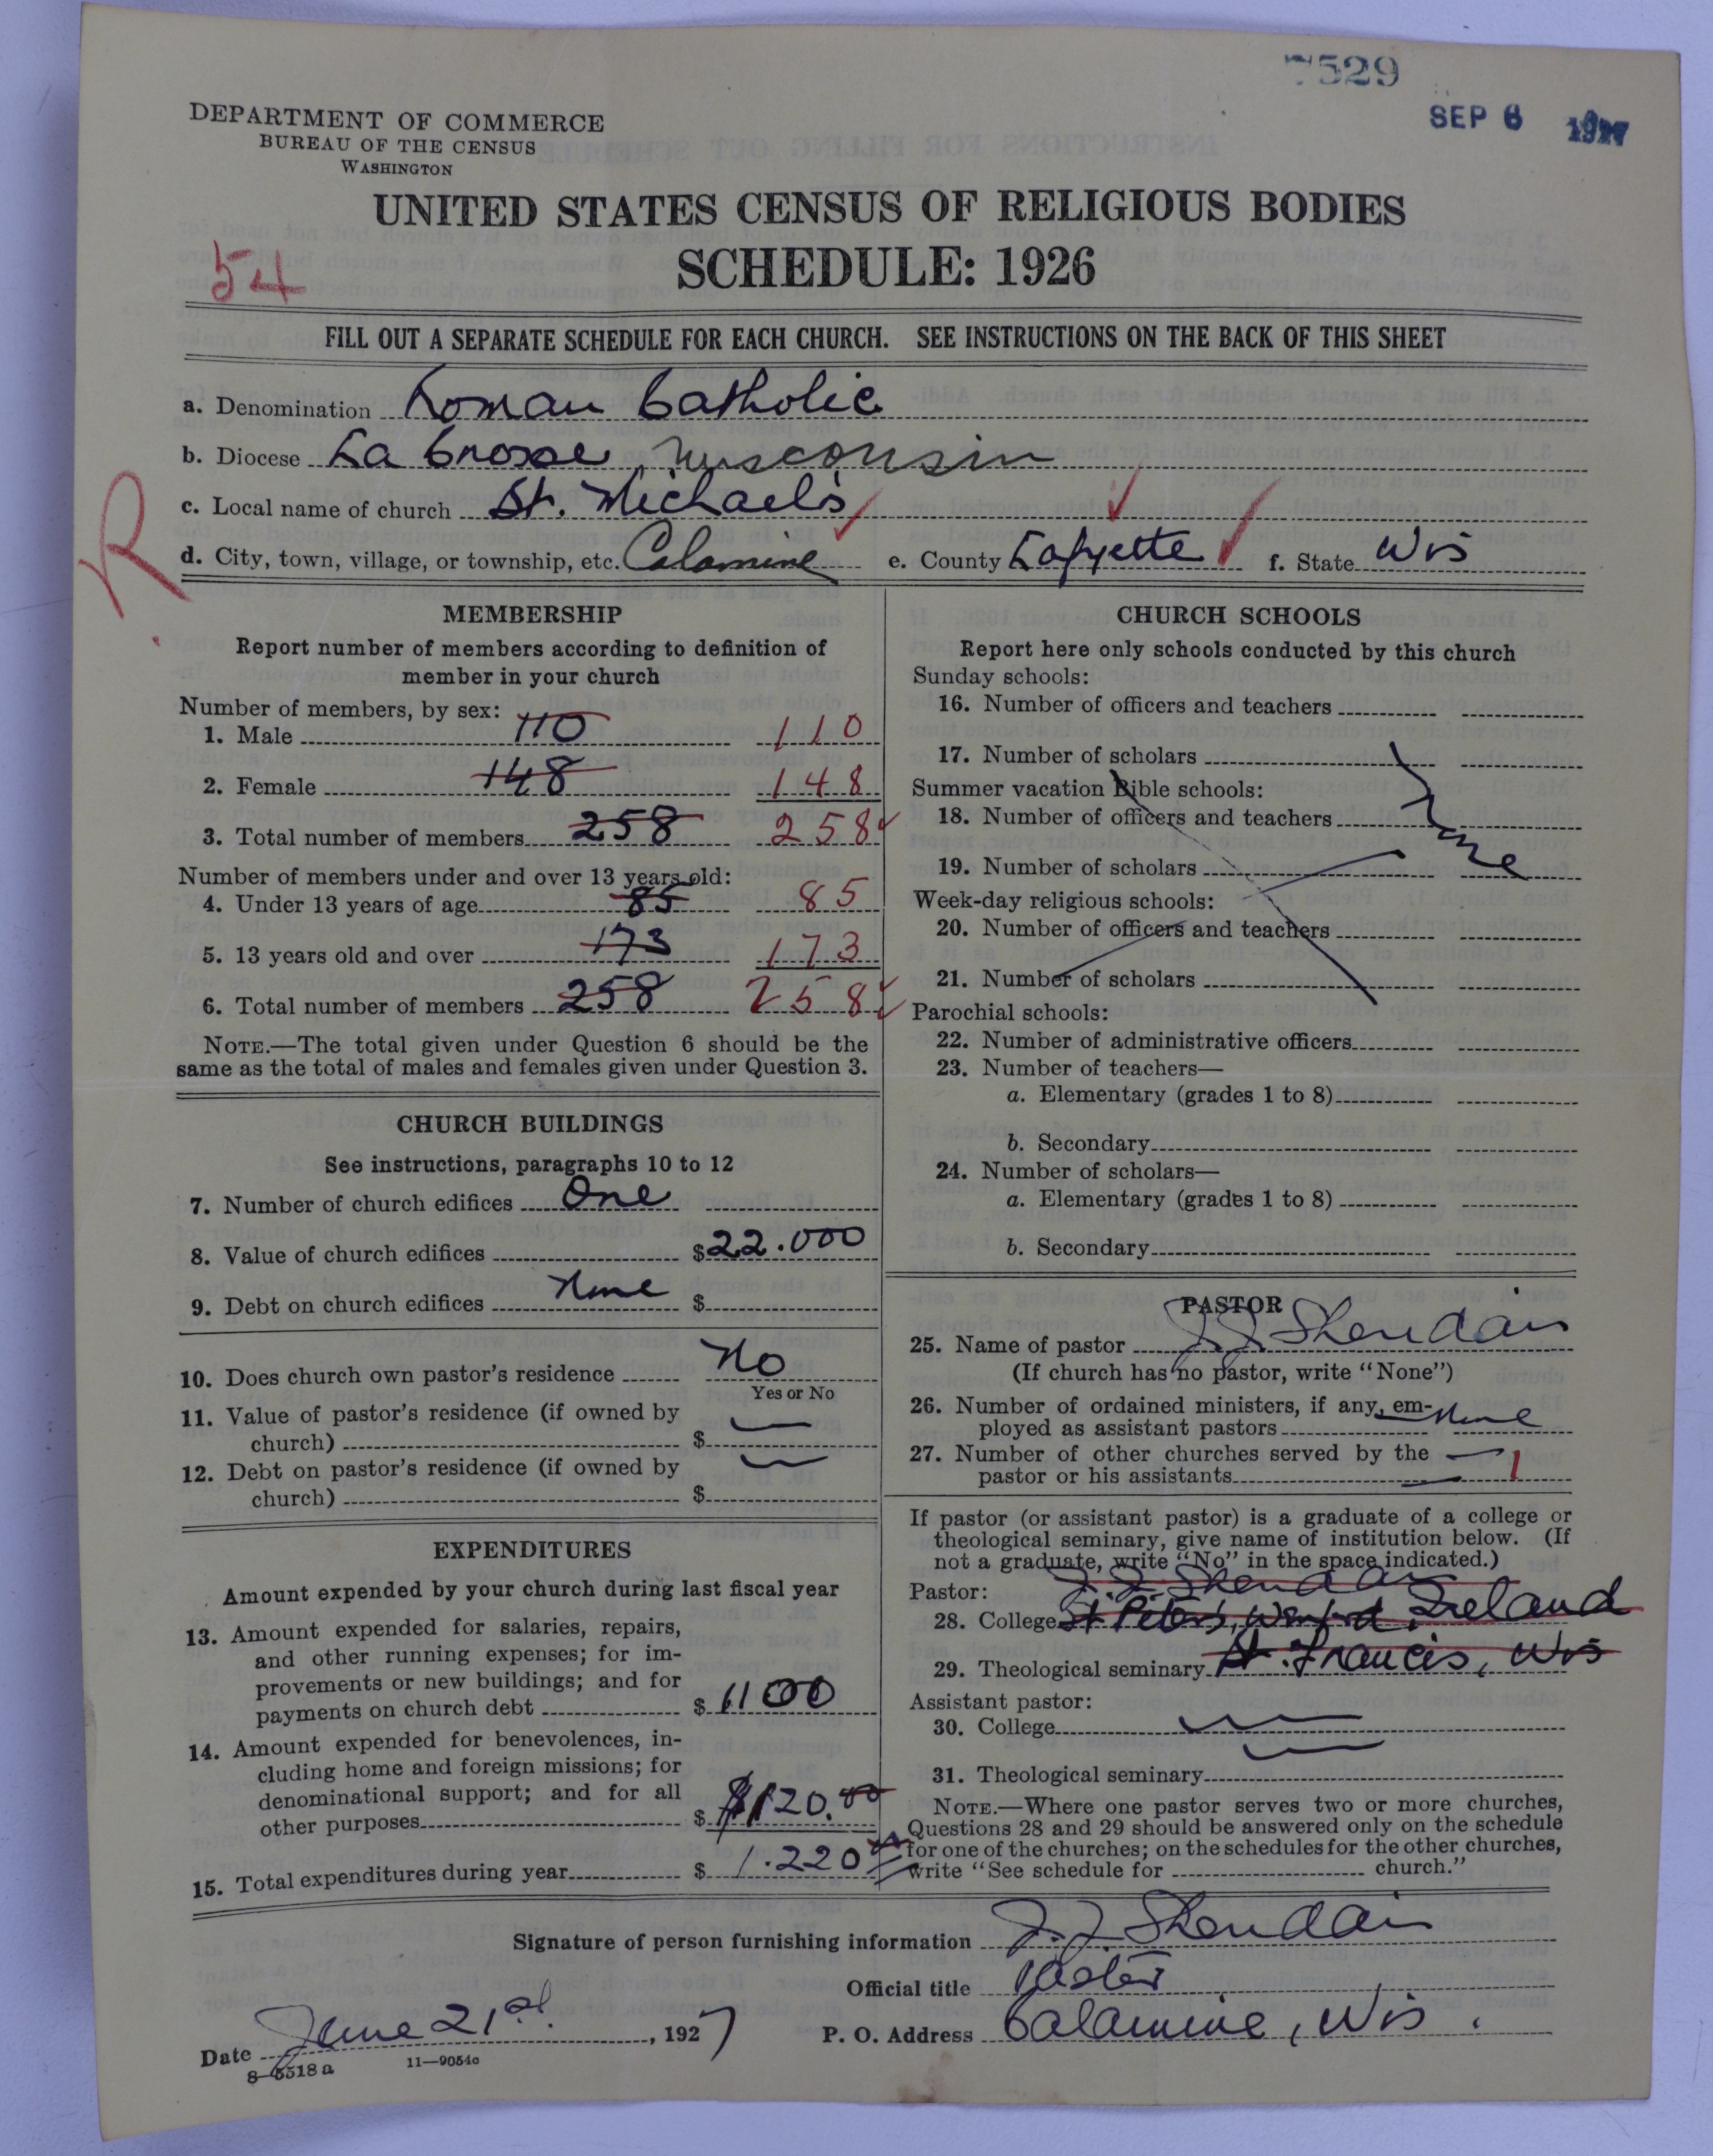 7529
SEP 6 1927
DEPARTMENT OF COMMERCE
BUREAU OF THE CENSUS
WASHINGTON
UNITED STATES CENSUS OF RELIGIOUS BODIES
SCHEDULE: 1926
54
FILL OUT A SEPARATE SCHEDULE FOR EACH CHURCH. SEE INSTRUCTIONS ON THE BACK OF THIS SHEET
a. Denomination Roman Catholic
b. Diocese La Crosse, Wisconsin
c. Local name of church St. Michael's
R
d. City, town, village, or township, etc. Calamine e. County Lafyette f. State Wis
MEMBERSHIP
Report number of members according to definition of
member in your church
Number of members, by sex:
1. Male 110 110
2. Female 148 148
3. Total number of members 258 258
Number of members under and over 13 years old:
4. Under 13 years of age 85 85
5. 13 years old and over 173 173
6. Total number of members 258 258
NOTE.—The total given under Question 6 should be the
same as the total of males and females given under Question 3.
CHURCH BUILDINGS
See instructions, paragraphs 10 to 12
7. Number of church edifices One
8. Value of church edifices $22.000
9. Debt on church edifices None $
10. Does church own pastor's residence No
Yes or No
11. Value of pastor's residence (if owned by
church) $
12. Debt on pastor's residence (if owned by
church) $
EXPENDITURES
Amount expended by your church during last fiscal year
13. Amount expended for salaries, repairs,
and other running expenses; for im-
provements or new buildings; and for
payments on church debt $ 1100
14. Amount expended for benevolences, in-
cluding home and foreign missions; for
denominational support; and for all
other purposes $ $120.00
15. Total expenditures during year $ 1.220
CHURCH SCHOOLS
Report here only schools conducted by this church
Sunday schools:
16. Number of officers and teachers
17. Number of scholars
Summer vacation Bible schools:
18. Number of officers and teachers
None
19. Number of scholars
Week-day religious schools:
20. Number of officers and teachers
21. Number of scholars
Parochial schools:
22. Number of administrative officers
23. Number of teachers—
a. Elementary (grades 1 to 8)
b. Secondary
24. Number of scholars—
a. Elementary (grades 1 to 8)
b. Secondary
PASTOR
25. Name of pastor J. J. Sheridan
(If church has no pastor, write "None")
26. Number of ordained ministers, if any, em-
ployed as assistant pastors None
27. Number of other churches served by the
pastor or his assistants 1
If pastor (or assistant pastor) is a graduate of a college or
theological seminary, give name of institution below. (If
not a graduate, write "No" in the space indicated.)
Pastor: J. J. Sheridan
28. College St Peters, Wexford, Ireland
29. Theological seminary St. Francis, Wis
Assistant pastor:
30. College
31. Theological seminary
NOTE.—Where one pastor serves two or more churches,
Questions 28 and 29 should be answered only on the schedule
for one of the churches; on the schedules for the other churches,
write "See schedule for church."
Signature of person furnishing information J. J. Sheridan
Official title Pastor
Date June 21st, 1927 P. O. Address Calamine, Wis.
8—5518 a 11—9054c